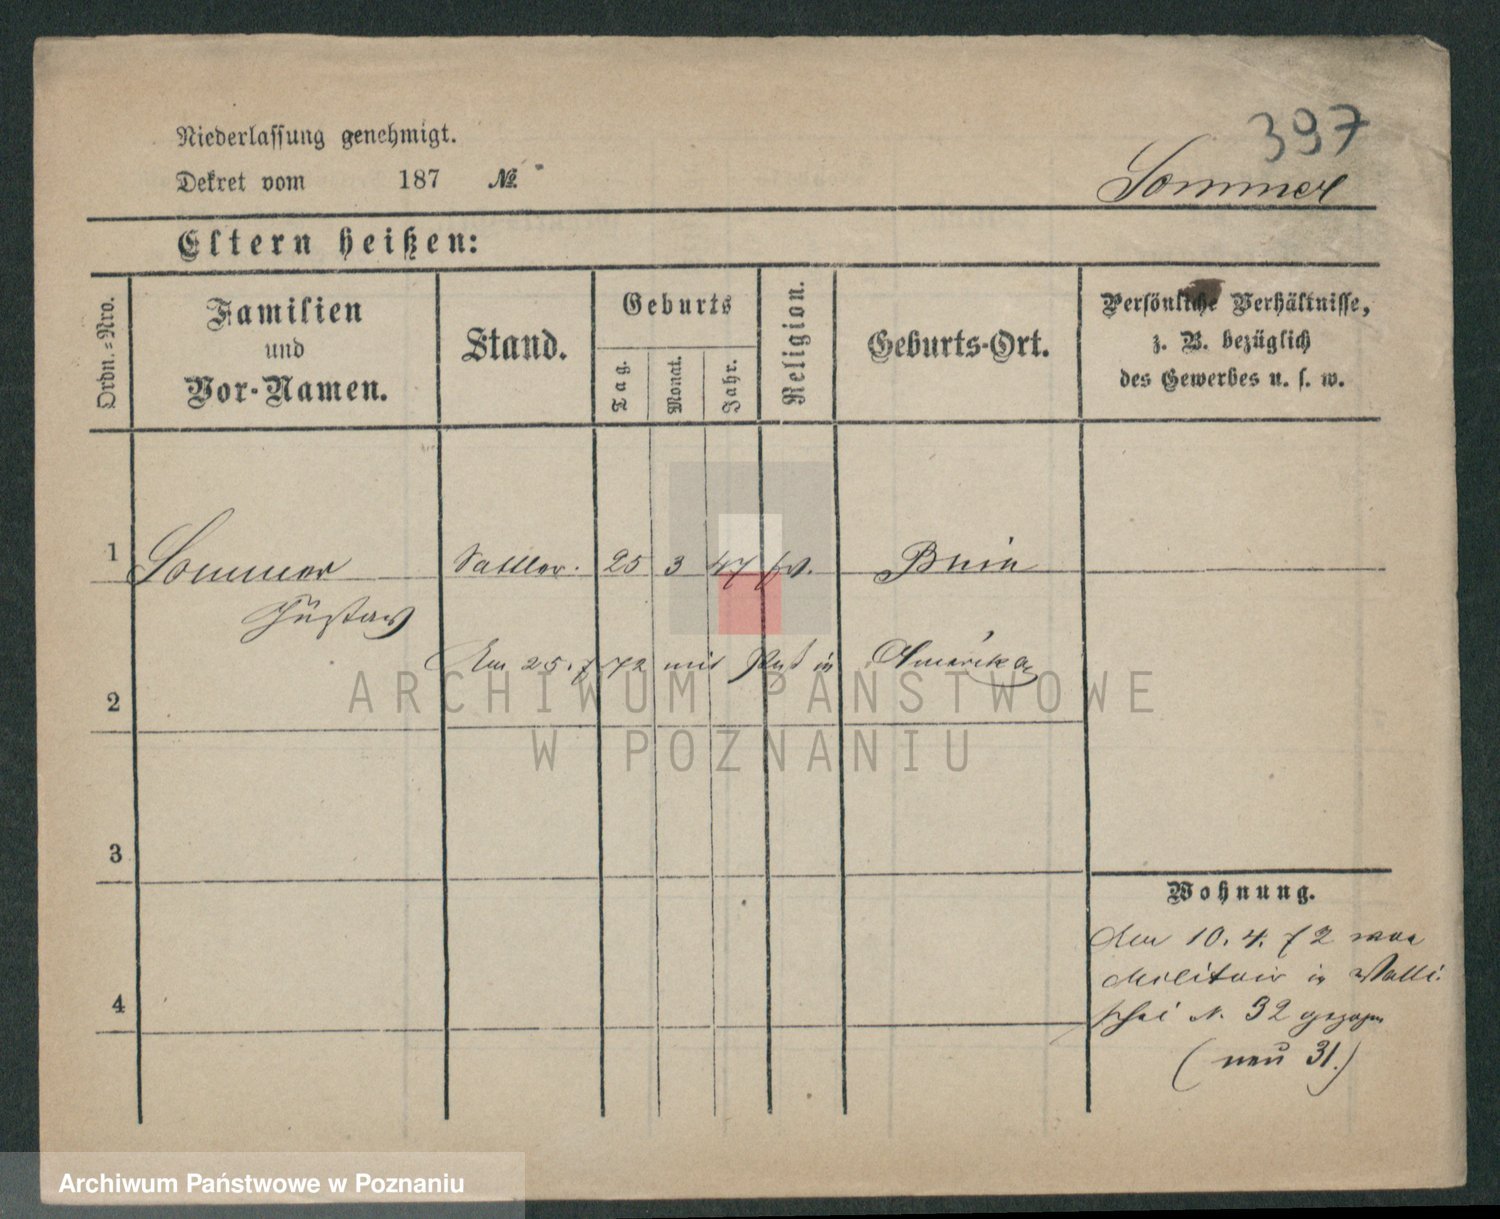 397
Niederlassung genehmigt.
Dekret vom 187 №
Sommer
Eltern heißen:
Ordn.-Nro.
Familien
und
Vor-Namen.
Stand.
Geburts
Tag.
Monat.
Jahr.
Religion.
Geburts-Ort.
Persönliche Verhältnisse,
z. B. bezüglich
des Gewerbes u. s. w.
1 Sommer Sattler. 25 3 47 ev. Bnin
Gustav
Am 25. 7 72 mit Paß in Amerika
2
3
4
Wohnung.
Am 10. 4. 72 vom
Militair in Walli-
schei N. 32 gezogen
(neu 31.)
ARCHIWUM PAŃSTWOWE
W POZNANIU
Archiwum Państwowe w Poznaniu